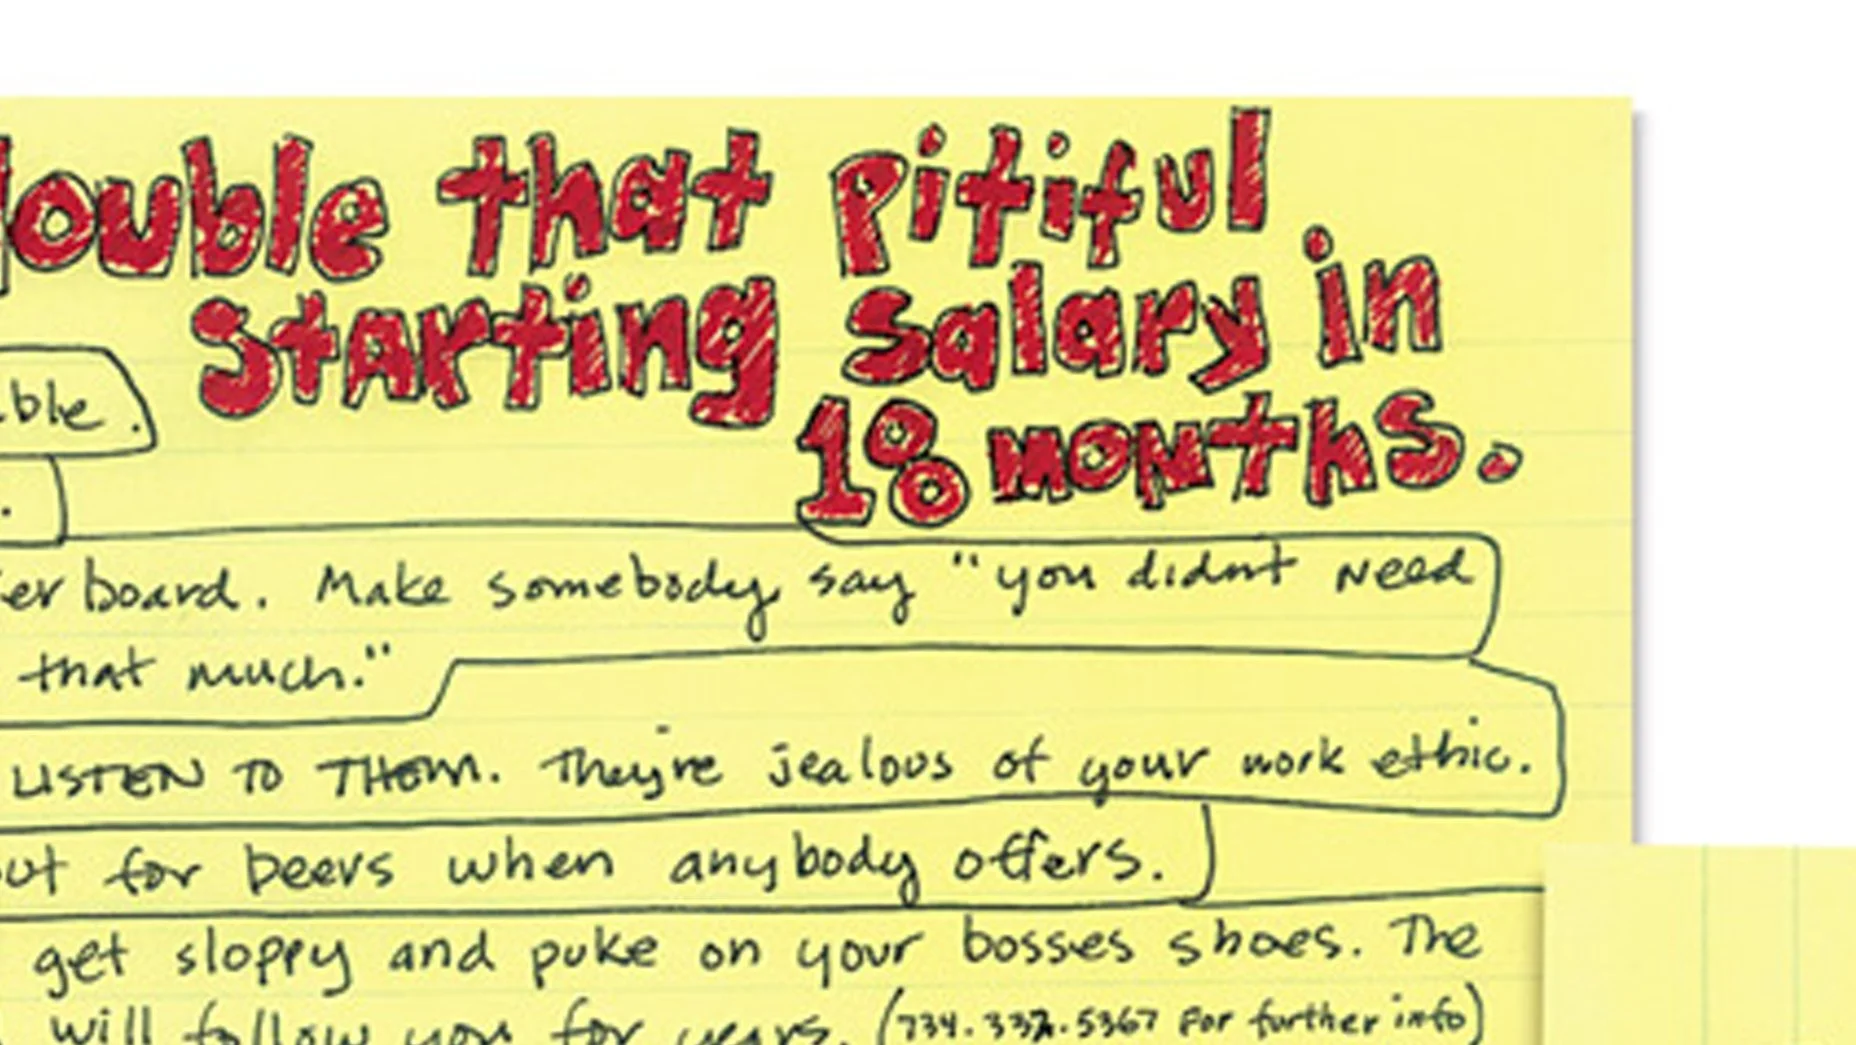 double that pitiful
starting salary in
18 months.
ble.
.
er board. Make somebody say "you didnt need
that much."
LISTEN TO THEM. They're jealous of your work ethic.
out for beers when anybody offers.
get sloppy and puke on your bosses shoes. The
will follow you for years. (734.332.5367 for further info)